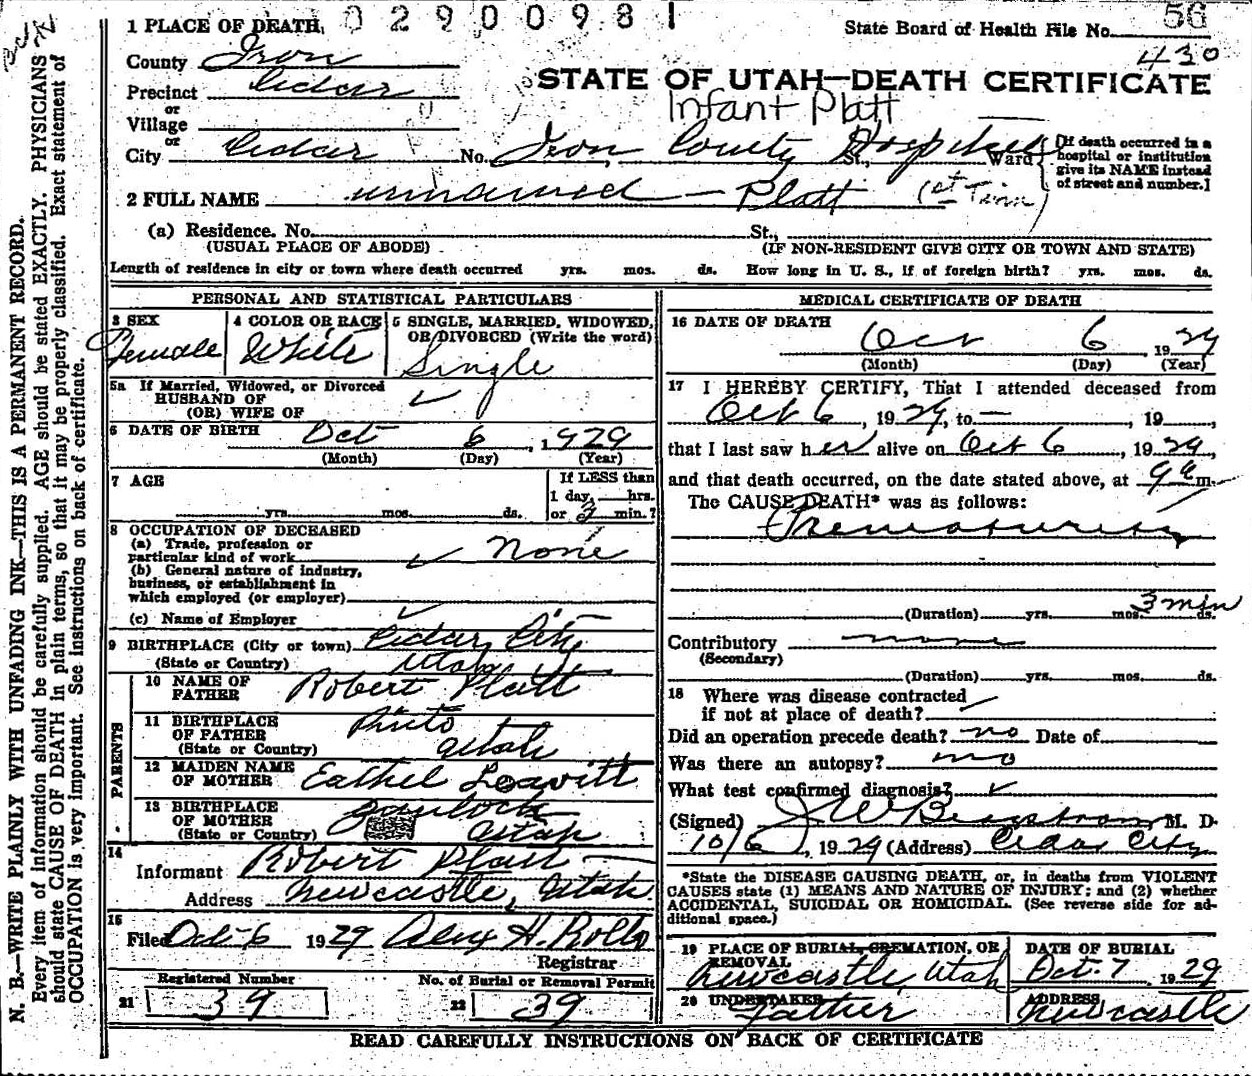 1 PLACE OF DEATH 02900981 State Board of Health File No. 56
430
County Iron
STATE OF UTAH—DEATH CERTIFICATE
Precinct Cedar
Infant Platt
or
Village
or
City Cedar No. Iron County Hospital St., Ward
[If death occurred in a hospital or institution give its NAME instead of street and number.]
2 FULL NAME unnamed — Platt (1st Twin)
(a) Residence. No. St.,
(USUAL PLACE OF ABODE) (IF NON-RESIDENT GIVE CITY OR TOWN AND STATE)
Length of residence in city or town where death occurred yrs. mos. ds. How long in U. S., if of foreign birth? yrs. mos. ds.
PERSONAL AND STATISTICAL PARTICULARS
3 SEX 4 COLOR OR RACE 5 SINGLE, MARRIED, WIDOWED, OR DIVORCED (Write the word)
Female White Single
5a If Married, Widowed, or Divorced
HUSBAND OF
(OR) WIFE OF
6 DATE OF BIRTH Oct 6, 1929
(Month) (Day) (Year)
7 AGE If LESS than
1 day, hrs.
yrs. mos. ds. or 3 min.?
8 OCCUPATION OF DECEASED
(a) Trade, profession or
particular kind of work None
(b) General nature of industry,
business, or establishment in
which employed (or employer)
(c) Name of Employer
9 BIRTHPLACE (City or town) Cedar City
(State or Country) Utah
PARENTS
10 NAME OF FATHER Robert Platt
11 BIRTHPLACE OF FATHER Pinto
(State or Country) Utah
12 MAIDEN NAME OF MOTHER Eathel Leavitt
13 BIRTHPLACE OF MOTHER
(State or Country) Utah
14
Informant Robert Platt
Address Newcastle, Utah
15
Filed Oct-6 1929 Alex H. Rollo
Registrar
Registered Number No. of Burial or Removal Permit
21 39 22 39
MEDICAL CERTIFICATE OF DEATH
16 DATE OF DEATH
Oct 6 1929
(Month) (Day) (Year)
17 I HEREBY CERTIFY, That I attended deceased from
Oct 6, 1929, to —, 19
that I last saw her alive on Oct 6, 1929,
and that death occurred, on the date stated above, at 9 a m.
The CAUSE DEATH* was as follows:
Prematurity
(Duration) yrs. mos. 3 min ds.
Contributory none
(Secondary)
(Duration) yrs. mos. ds.
18 Where was disease contracted
if not at place of death?
Did an operation precede death? no Date of
Was there an autopsy? no
What test confirmed diagnosis?
(Signed) J W Bergstrom M. D.
10/6, 1929 (Address) Cedar City
*State the DISEASE CAUSING DEATH, or, in deaths from VIOLENT
CAUSES state (1) MEANS AND NATURE OF INJURY; and (2) whether
ACCIDENTAL, SUICIDAL OR HOMICIDAL. (See reverse side for ad-
ditional space.)
19 PLACE OF BURIAL, CREMATION, OR REMOVAL DATE OF BURIAL
Newcastle, Utah Oct. 7 1929
20 UNDERTAKER ADDRESS
Father Newcastle
READ CAREFULLY INSTRUCTIONS ON BACK OF CERTIFICATE
N. B.—WRITE PLAINLY WITH UNFADING INK—THIS IS A PERMANENT RECORD.
Every item of information should be carefully supplied. AGE should be stated EXACTLY. PHYSICIANS
should state CAUSE OF DEATH in plain terms, so that it may be properly classified. Exact statement of
OCCUPATION is very important. See instructions on back of certificate.